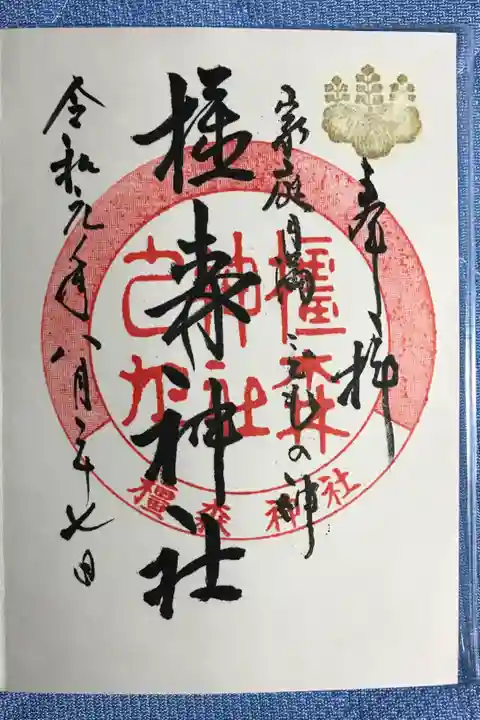 奉拝
家庭円満の神
橿森神社
令和元年八月二十七日
橿森
神社
橿森神社